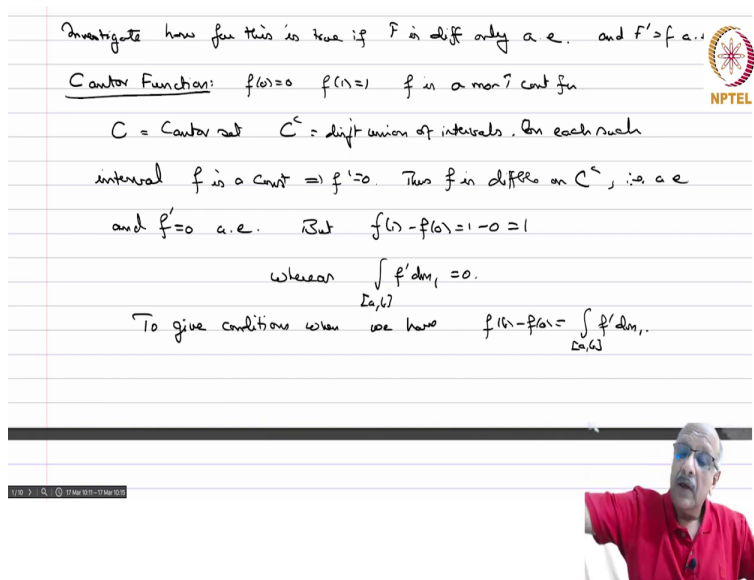 Investigate how far this is true if F is diff only a.e. and F' = f a.e
NPTEL
Cantor Function: f(0)=0 f(1)=1 f is a mon ↑ cont fn
C = Cantor set C^c = disjt union of intervals. On each such
interval f is a const ⇒ f'=0. Thus f is diffble on C^c, i.e. a e
and f'=0 a.e. But f(1)-f(0)=1-0=1
whereas ∫_{[a,b]} f'dm_1 = 0.
To give conditions when we have f(b)-f(a)= ∫_{[a,b]} f'dm_1.
1/10 17 Mar 10:11 – 17 Mar 10:15